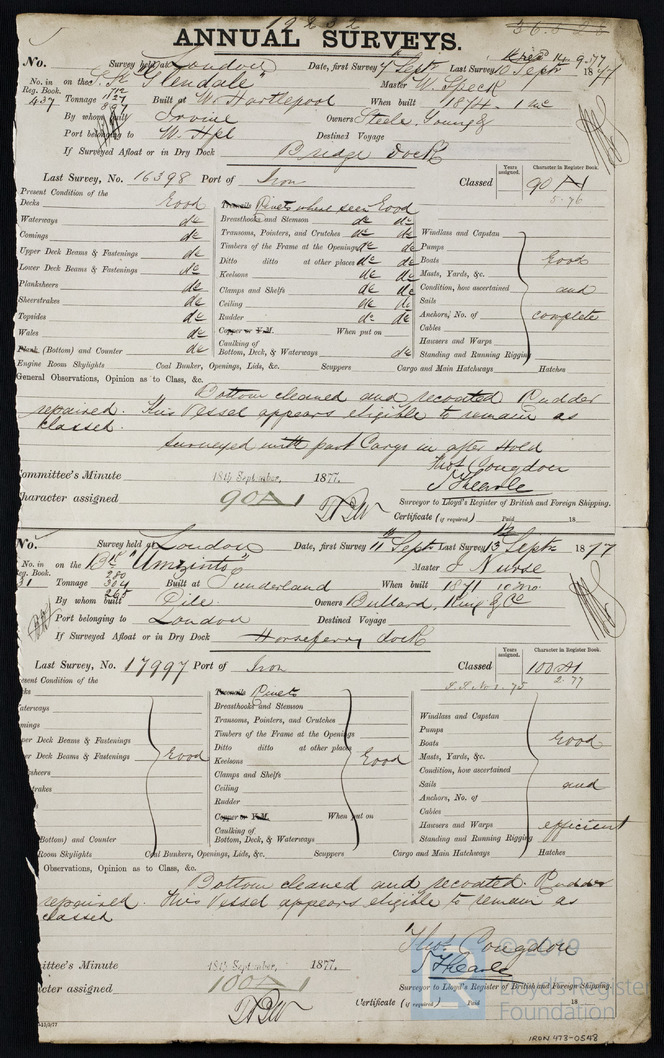 ANNUAL SURVEYS.
No. Survey held at London Date, first Survey 4 Septr Last Survey 10 Septr 1877
No. in on the S.S. "Glendale" Master W. Speck
Reg. Book. 437 Tonnage 1127 Built at W. Hartlepool When built 1874 - 1 mo
By whom built Irvine Owners Steele, Young &
Port belonging to W. Hpl Destined Voyage
If Surveyed Afloat or in Dry Dock Bridge Dock
Last Survey, No. 16398 Port of Iron Classed 90 A1
Years assigned. Character in Register Book.
5.76
Present Condition of the
Decks Good
Waterways do
Comings do
Upper Deck Beams & Fastenings do
Lower Deck Beams & Fastenings do
Planksheers do
Sheerstrakes do
Topsides do
Wales do
Plank (Bottom) and Counter do
Treenails Rivets where seen Good
Breasthooks and Stemson do do
Transoms, Pointers, and Crutches do do
Timbers of the Frame at the Openings do do
Ditto ditto at other places do do
Keelsons do do
Clamps and Shelfs do do
Ceiling do do
Rudder do do
Copper or Y.M. When put on
Caulking of
Bottom, Deck, & Waterways do
Windlass and Capstan
Pumps
Boats Good
Masts, Yards, &c.
Condition, how ascertained and
Sails
Anchors, No. of complete
Cables
Hawsers and Warps
Standing and Running Rigging
Engine Room Skylights Coal Bunkers, Openings, Lids, &c. Scuppers Cargo and Main Hatchways Hatches
General Observations, Opinion as to Class, &c.
Bottom cleaned and recoated Rudder
repaired. This Vessel appears eligible to remain as
classed.
Surveyed with part Cargo in after Hold
Thos. Congdon
Committee's Minute 18th September, 1877.
Character assigned 90 A1
Surveyor to Lloyd's Register of British and Foreign Shipping.
Certificate (if required) Paid 18
No. Survey held at London Date, first Survey 11 Septr Last Survey 13 Septr 1877
No. in on the Bk "Umzinto" Master J Nurse
Reg. Book. 31 Tonnage 304 Built at Sunderland When built 1871 10 mo.
By whom built Pile Owners Bullard, King & Co
Port belonging to London Destined Voyage
If Surveyed Afloat or in Dry Dock Horseferry Dock
Last Survey, No. 17997 Port of Iron Classed 100 A1
Years assigned. Character in Register Book.
2.77
esent Condition of the
ks
aterways
mings
per Deck Beams & Fastenings
er Deck Beams & Fastenings Good
sheers
trakes
Bottom) and Counter
Treenails Rivets
Breasthooks and Stemson
Transoms, Pointers, and Crutches
Timbers of the Frame at the Openings
Ditto ditto at other places Good
Keelsons
Clamps and Shelfs
Ceiling
Rudder
Copper or Y.M. When put on
Caulking of
Bottom, Deck, & Waterways
Windlass and Capstan
Pumps
Boats Good
Masts, Yards, &c.
Condition, how ascertained
Sails and
Anchors, No. of
Cables
Hawsers and Warps efficient
Standing and Running Rigging
Room Skylights Coal Bunkers, Openings, Lids, &c. Scuppers Cargo and Main Hatchways Hatches
Observations, Opinion as to Class, &c.
Bottom cleaned and recoated. Rudder
repaired. This Vessel appears eligible to remain as
classed
Thos. Congdon
ittee's Minute 18th September, 1877.
cter assigned 100 A1
Surveyor to Lloyd's Register of British and Foreign Shipping.
Certificate (if required) Paid 18
© 2019
Lloyd's Register
Foundation
IRON 473-0548